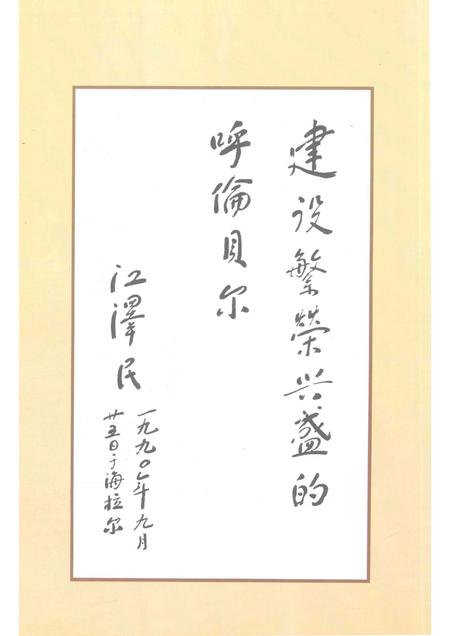 建设繁荣兴盛的
呼倫貝尔
江澤民
一九九〇年九月
廿五日于海拉尔